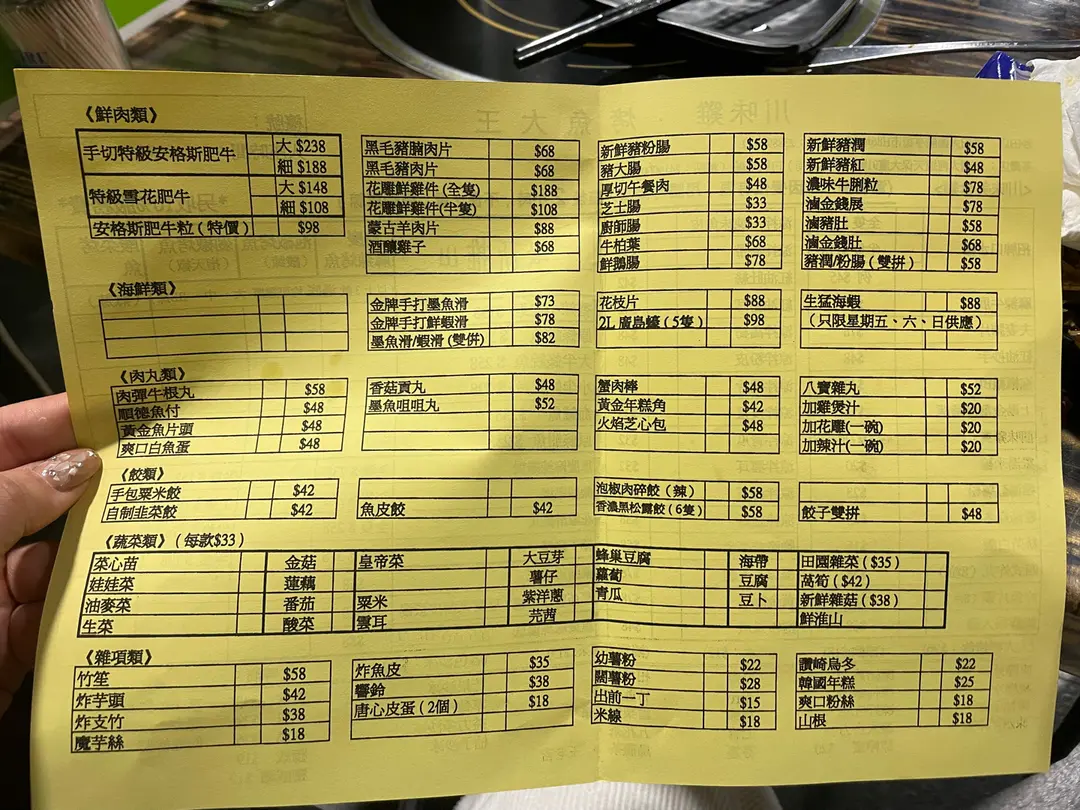 《鮮肉類》
手切特級安格斯肥牛 大 $238
細 $188
特級雪花肥牛 大 $148
細 $108
安格斯肥牛粒(特價) $98
黑毛豬腩肉片 $68
黑毛豬肉片 $68
花雕鮮雞件(全隻) $188
花雕鮮雞件(半隻) $108
蒙古羊肉片 $88
酒釀雞子 $68
新鮮豬粉腸 $58
豬大腸 $58
厚切午餐肉 $48
芝士腸 $33
廚師腸 $33
牛柏葉 $68
鮮鵝腸 $78
新鮮豬潤 $58
新鮮豬紅 $48
濃味牛脷粒 $78
滷金錢展 $78
滷豬肚 $58
滷金錢肚 $68
豬潤/粉腸(雙拼) $58
《海鮮類》
金牌手打墨魚滑 $73
金牌手打鮮蝦滑 $78
墨魚滑/蝦滑(雙併) $82
花枝片 $88
2L 廣島蠔(5隻) $98
生猛海蝦 $88
(只限星期五、六、日供應)
《肉丸類》
肉彈牛根丸 $58
順德魚付 $48
黃金魚片頭 $48
爽口白魚蛋 $48
香菇貢丸 $48
墨魚咀咀丸 $52
蟹肉棒 $48
黃金年糕角 $42
火焰芝心包 $48
八寶雜丸 $52
加雞煲汁 $20
加花雕(一碗) $20
加辣汁(一碗) $20
《餃類》
手包粟米餃 $42
自制韭菜餃 $42
魚皮餃 $42
泡椒肉碎餃(辣) $58
香濃黑松露餃(6隻) $58
餃子雙拼 $48
《蔬菜類》(每款$33)
菜心苗 金菇 皇帝菜 大豆芽 蜂巢豆腐 海帶 田園雜菜($35)
娃娃菜 蓮藕 薯仔 蘿蔔 豆腐 萵筍($42)
油麥菜 番茄 粟米 紫洋蔥 青瓜 豆卜 新鮮雜菇($38)
生菜 酸菜 雲耳 芫茜 鮮淮山
《雜項類》
竹笙 $58
炸芋頭 $42
炸支竹 $38
魔芋絲 $18
炸魚皮 $35
響鈴 $38
唐心皮蛋(2個) $18
幼薯粉 $22
闊薯粉 $28
出前一丁 $15
米線 $18
讚崎烏冬 $22
韓國年糕 $25
爽口粉絲 $18
山根 $18